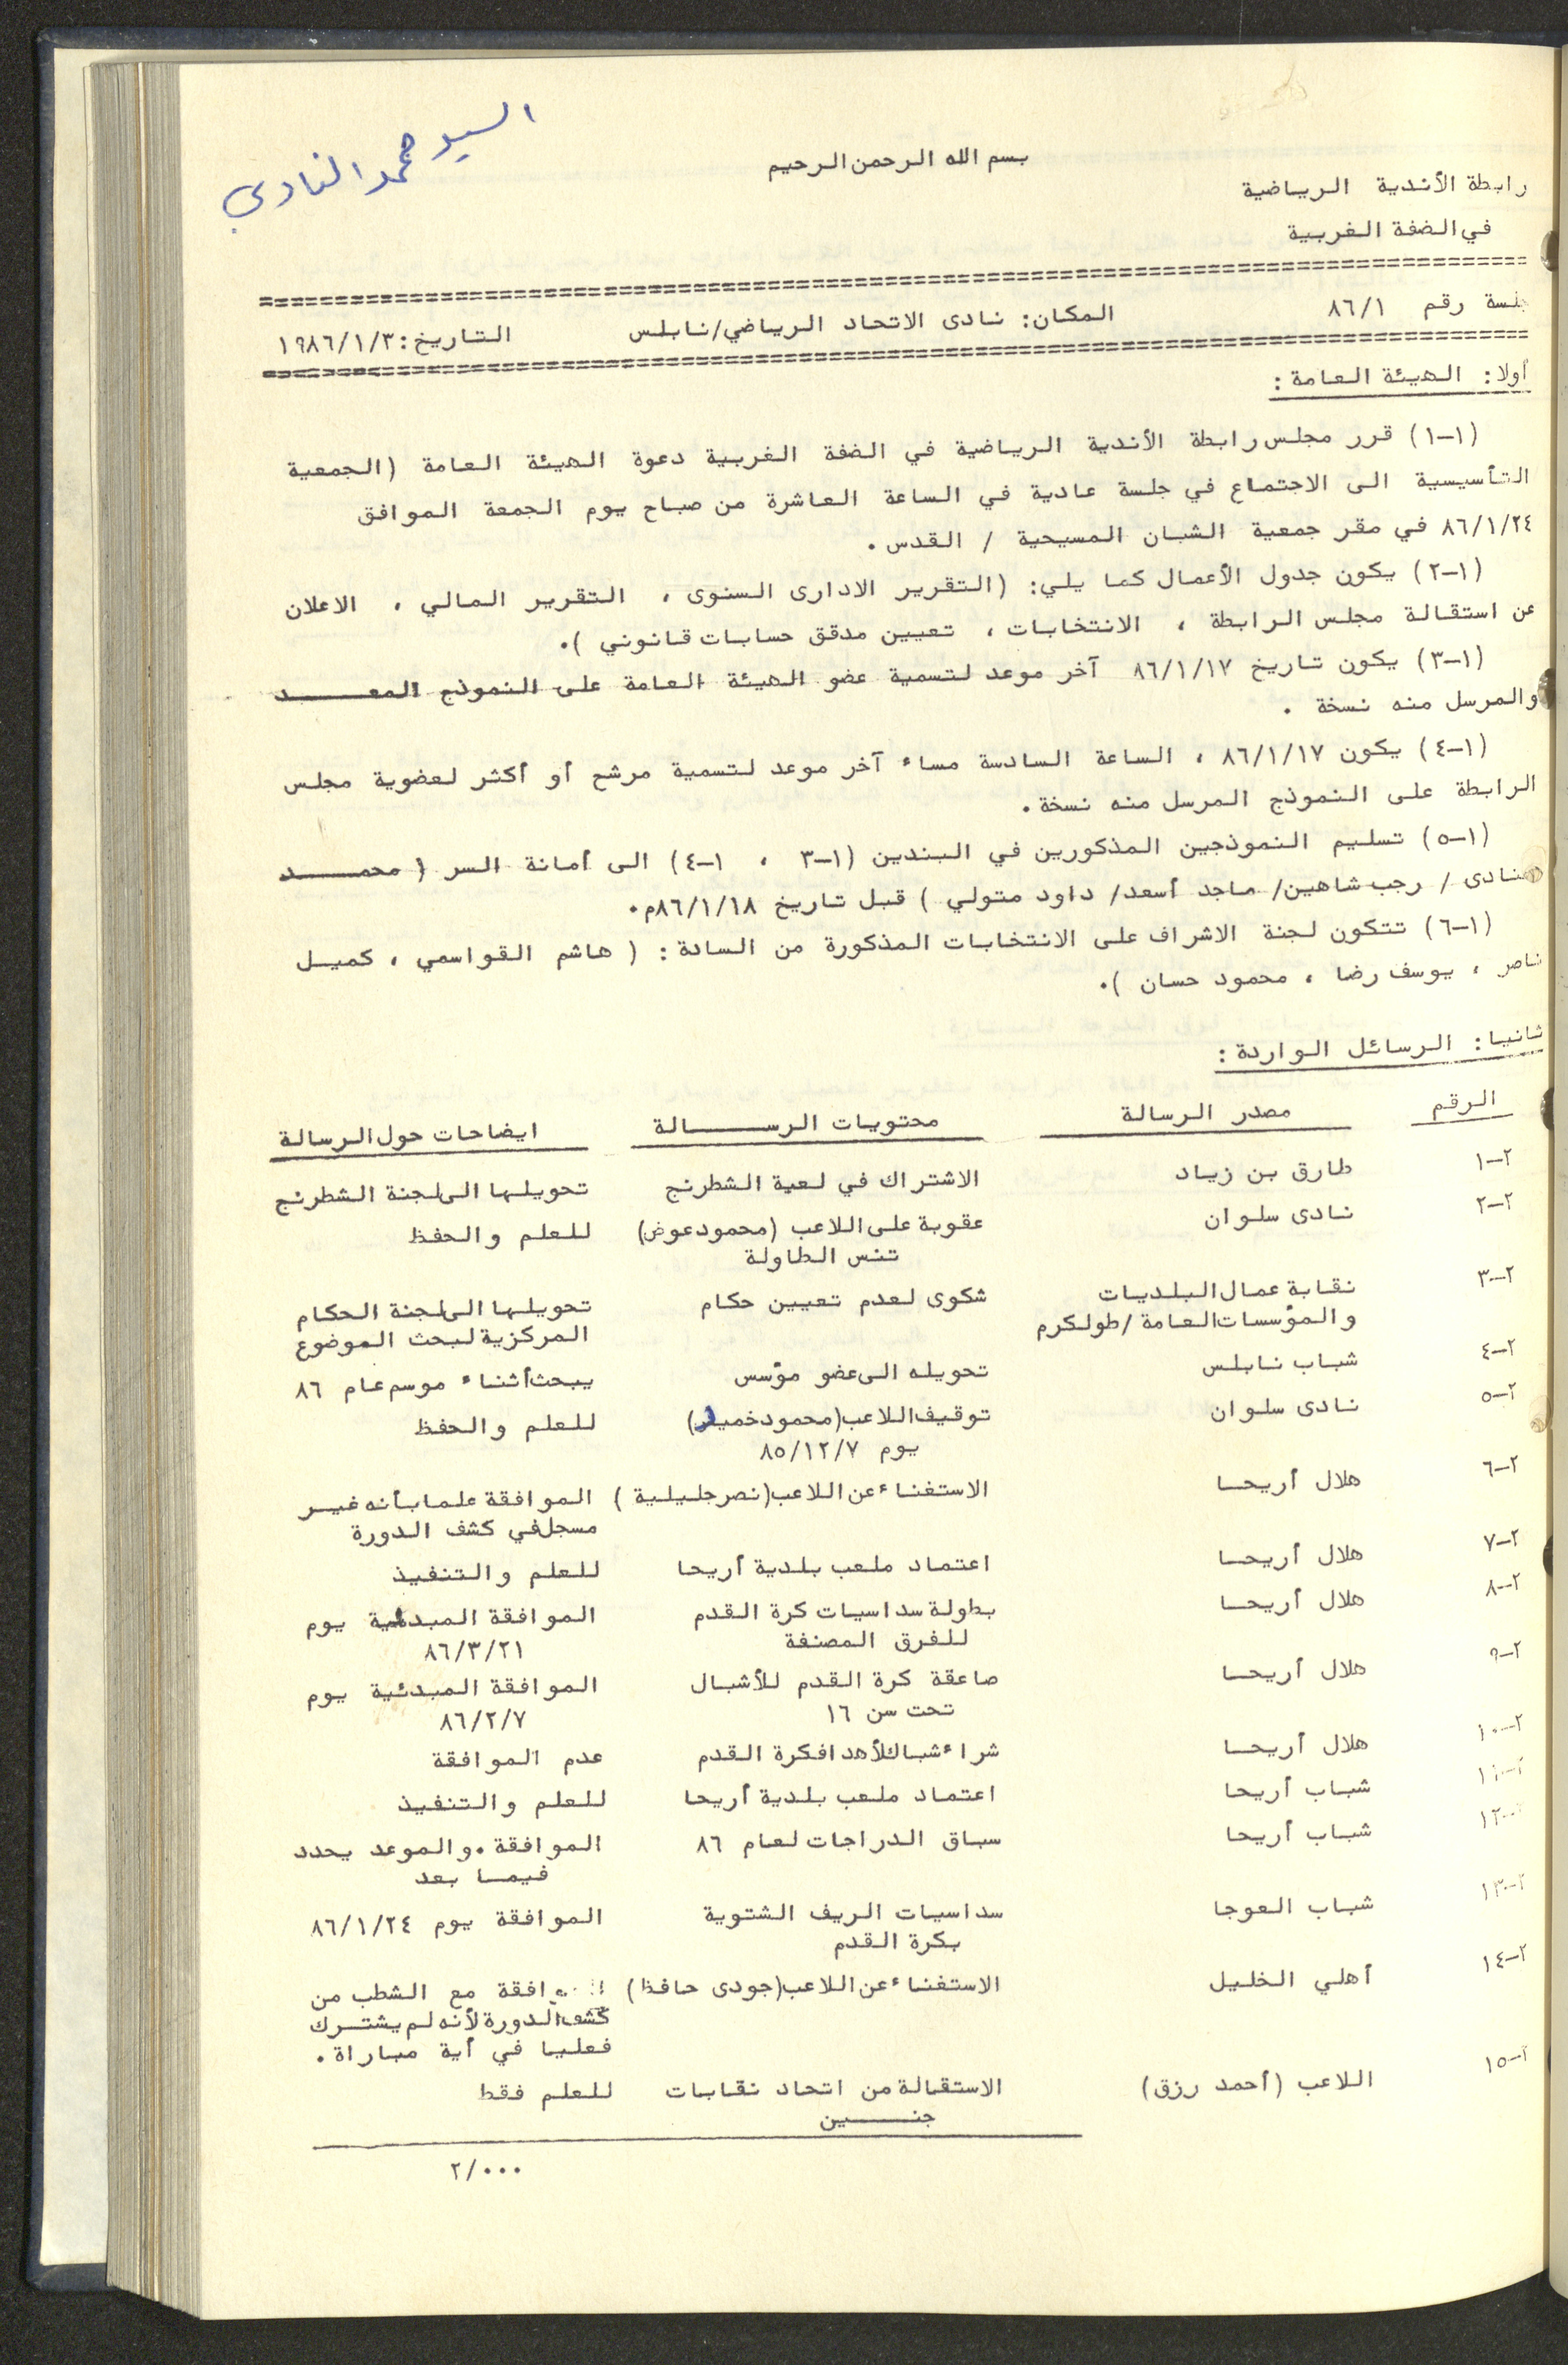 السيد محمد النادي
بسم الله الرحمن الرحيم
رابطة الأندية الرياضية
في الضفة الغربية
جلسة رقم ٨٦/١ المكان: نادى الاتحاد الرياضي/نابلس التاريخ: ١٩٨٦/١/٣
أولا: الهيئة العامة:
(١-١) قرر مجلس رابطة الأندية الرياضية في الضفة الغربية دعوة الهيئة العامة (الجمعية
التأسيسية الى الاجتماع في جلسة عادية في الساعة العاشرة من صباح يوم الجمعة الموافق
٨٦/١/٢٤ في مقر جمعية الشبان المسيحية / القدس.
(١-٢) يكون جدول الأعمال كما يلي: (التقرير الادارى السنوى ، التقرير المالي ، الاعلان
عن استقالة مجلس الرابطة ، الانتخابات ، تعيين مدقق حسابات قانوني ).
(١-٣) يكون تاريخ ٨٦/١/١٧ آخر موعد لتسمية عضو الهيئة العامة على النموذج المعـــــد
والمرسل منه نسخة .
(١-٤) يكون ٨٦/١/١٧ ، الساعة السادسة مساء آخر موعد لتسمية مرشح أو أكثر لعضوية مجلس
الرابطة على النموذج المرسل منه نسخة.
(١-٥) تسليم النموذجين المذكورين في البندين (١-٣ ، ١-٤) الى أمانة السر ( محمـــــد
النادى / رجب شاهين/ ماجد أسعد/ داود متولي ) قبل تاريخ ٨٦/١/١٨م.
(١-٦) تتكون لجنة الاشراف على الانتخابات المذكورة من السادة: ( هاشم القواسمي ، كميـل
ناصر ، يوسف رضا ، محمود حسان ).
ثانيا: الرسائل الواردة:
الرقم مصدر الرسالة محتويات الرســـــالة ايضاحات حول الرسالة
٢-١ طارق بن زياد الاشتراك في لعبة الشطرنج تحويلها الى لجنة الشطرنج
٢-٢ نادى سلوان عقوبة على اللاعب (محمود عوض) للعلم والحفظ
تنس الطاولة
٢-٣ نقابة عمال البلديات شكوى لعدم تعيين حكام تحويلها الى لجنة الحكام
والمؤسسات العامة/طولكرم المركزية لبحث الموضوع
٢-٤ شباب نابلس تحويله الى عضو مؤسس يبحث أثناء موسم عام ٨٦
٢-٥ نادى سلوان توقيف اللاعب (محمود خميس) للعلم والحفظ
يوم ٨٥/١٢/٧
٢-٦ هلال أريحـا الاستغناء عن اللاعب (نصر جليلية ) الموافقة علما بأنه غيـر
مسجل في كشف الدورة
٢-٧ هلال أريحـا اعتماد ملعب بلدية أريحا للعلم والتنفيذ
٢-٨ هلال أريحـا بطولة سداسيات كرة القدم الموافقة المبدئية يوم
للفرق المصنفة ٨٦/٣/٢١
٢-٩ هلال أريحـا صاعقة كرة القدم للأشبال الموافقة المبدئية يوم
تحت سن ١٦ ٨٦/٢/٧
٢-١٠ هلال أريحـا شراء شباك لأهداف كرة القدم عدم الموافقة
٢-١١ شباب أريحا اعتماد ملعب بلدية أريحا للعلم والتنفيذ
٢-١٢ شباب أريحا سباق الدراجات لعام ٨٦ الموافقة . والموعد يحدد
فيمـا بعد
٢-١٣ شباب العوجا سداسيات الريف الشتوية الموافقة يوم ٨٦/١/٢٤
بكرة القدم
٢-١٤ أهلي الخليل الاستغناء عن اللاعب (جودى حافظ) الموافقة مع الشطب من
كشف الدورة لأنه لم يشتـرك
فعليا في أية مباراة .
٢-١٥ اللاعب (أحمد رزق) الاستقالة من اتحاد نقابات للعلم فقط
جنـــين
٢/٠٠٠